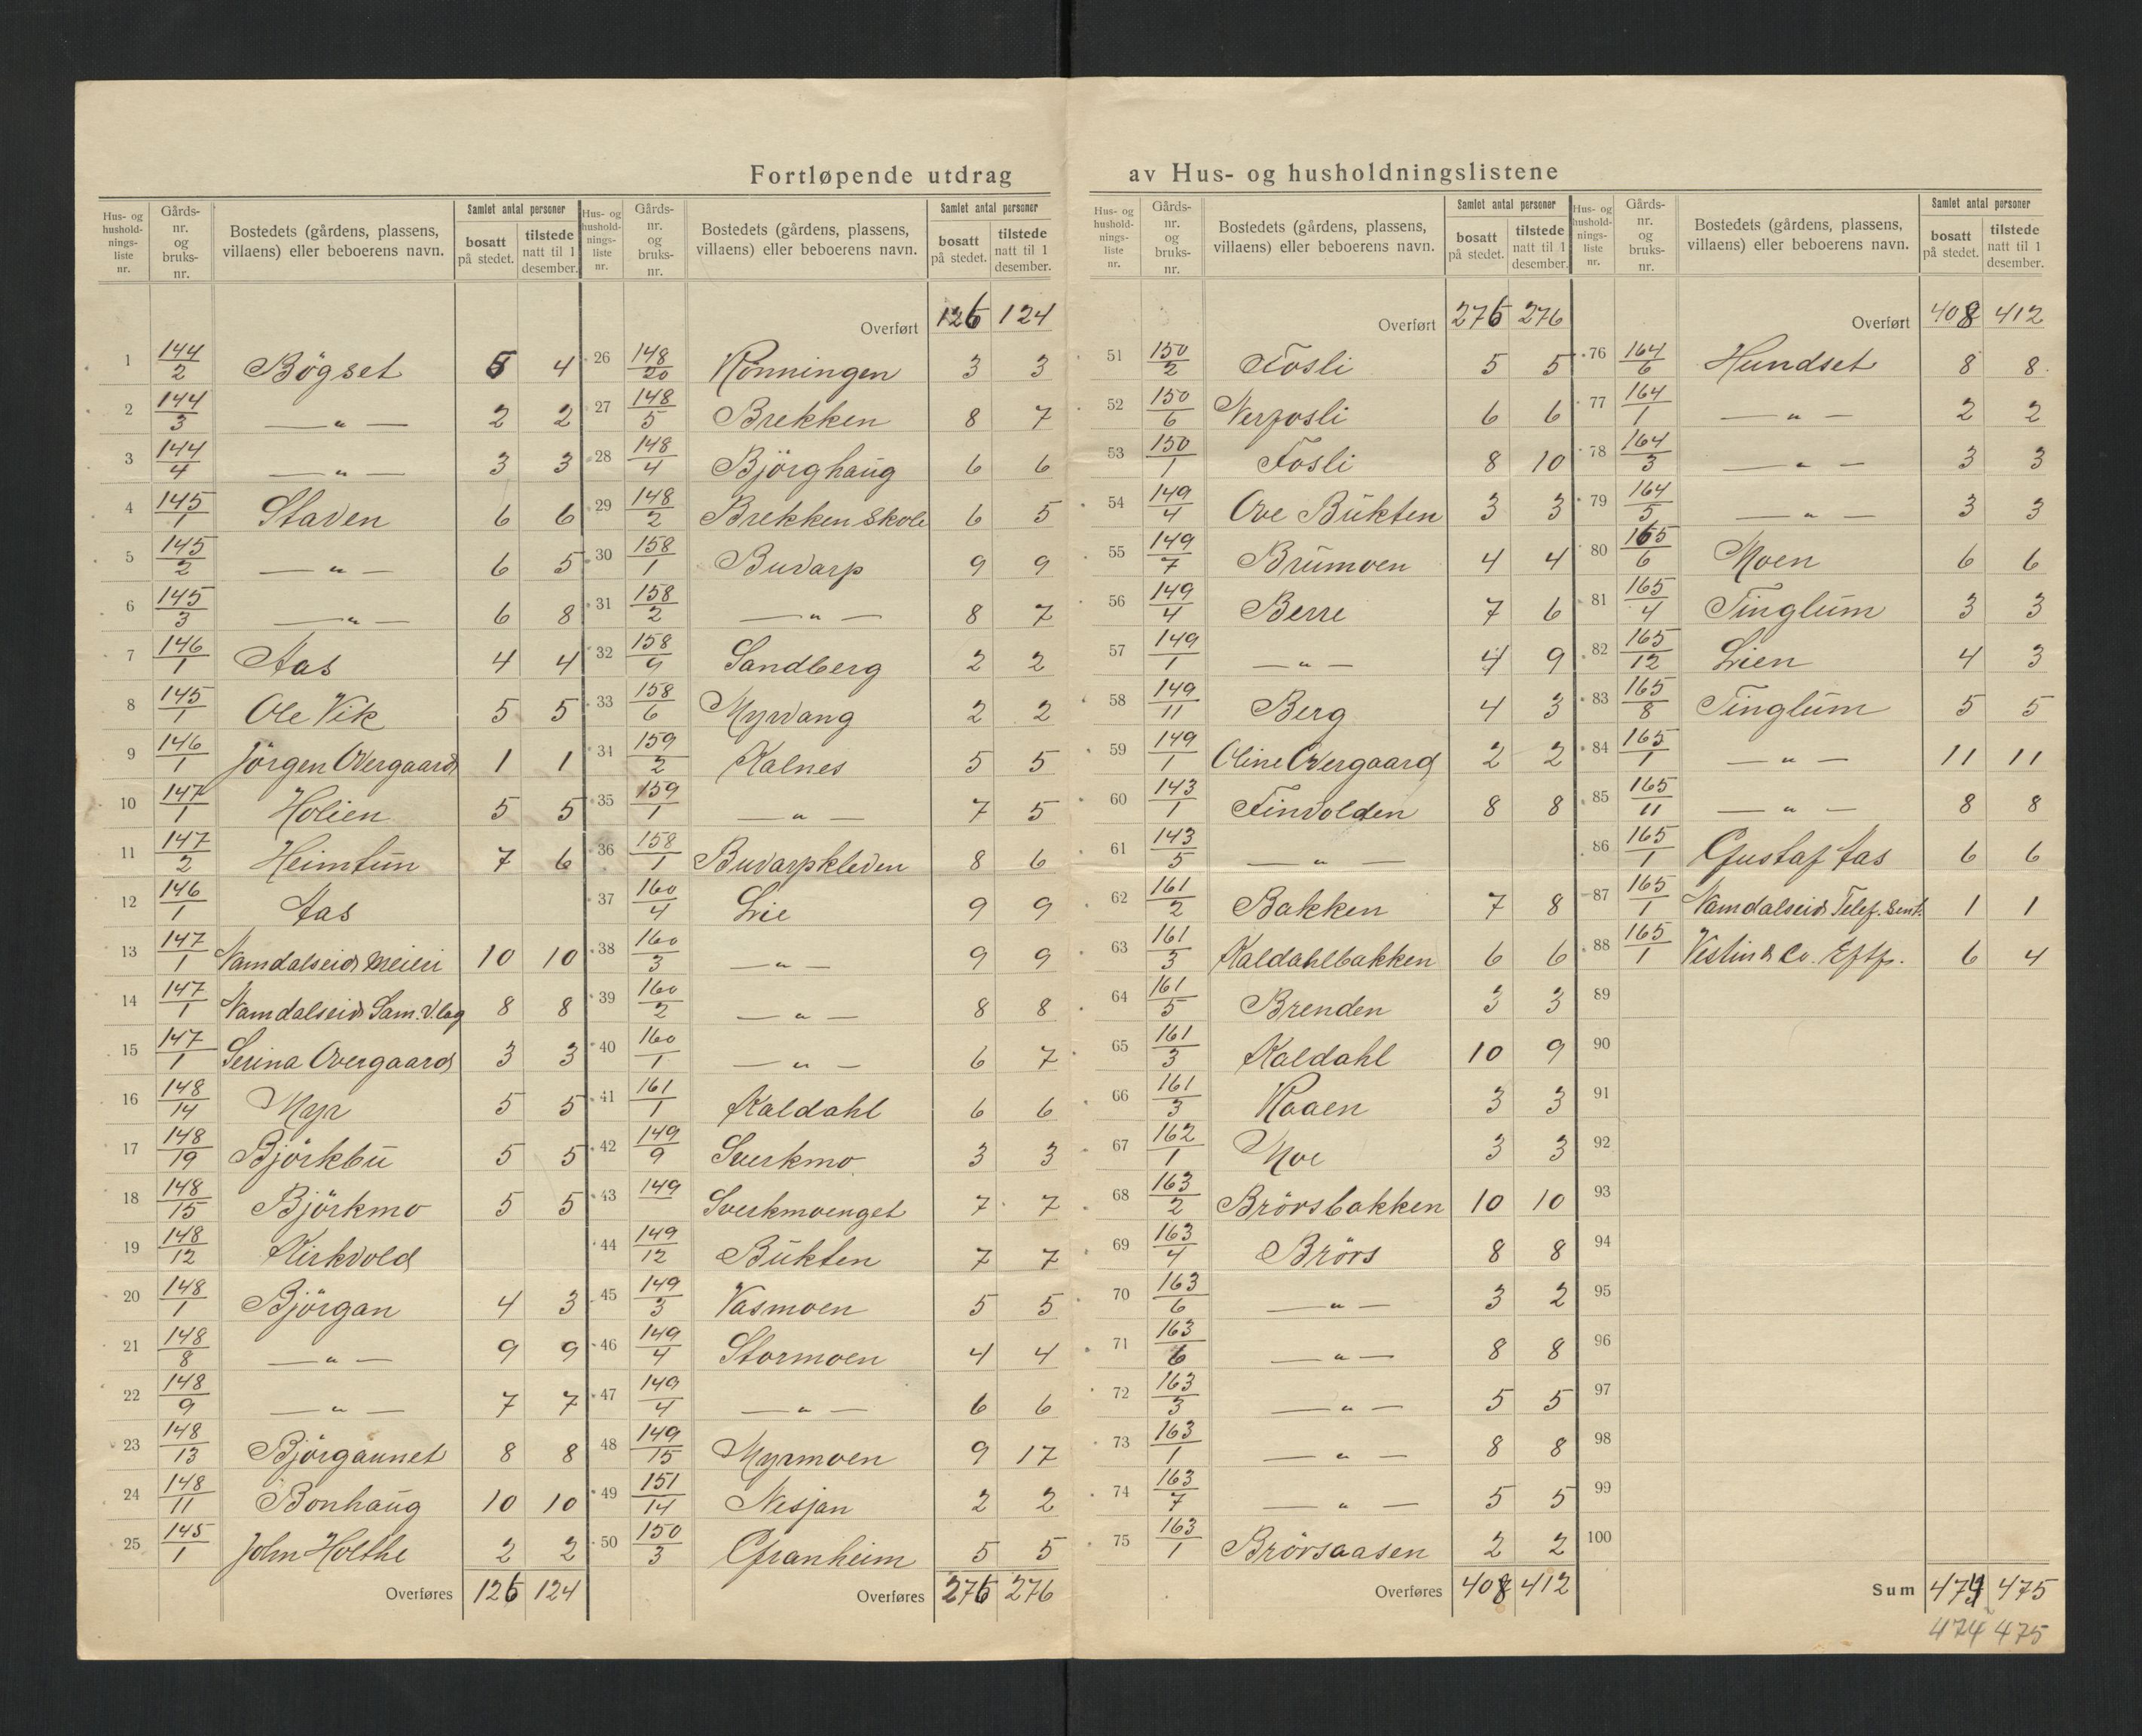 Fortløpende utdrag av Hus- og husholdningslistene
Hus- og hushold-nings-liste nr. | Gårds-nr. og bruks-nr. | Bostedets (gårdens, plassens, villaens) eller beboerens navn. | Samlet antal personer | bosatt på stedet. | tilstede natt til 1 desember.
1 144/2 Bögset 5 4
2 144/3 — „ — 2 2
3 144/4 — „ — 3 3
4 145/1 Staven 6 6
5 145/2 — „ — 6 5
6 145/3 — „ — 6 8
7 146/1 Aas 4 4
8 145/1 Ole Vik 5 5
9 146/1 Jörgen Overgaard 1 1
10 147/1 Holien 5 5
11 147/2 Heimtun 7 6
12 146/1 Aas
13 147/1 Namdalseid Meieri 10 10
14 147/1 Namdalseid Sam.V.lag 8 8
15 147/1 Serina Overgaard 3 3
16 148/14 Myr 5 5
17 148/19 Björkbu 5 5
18 148/15 Björkmo 5 5
19 148/12 Kirkvold
20 148/1 Björgan 4 3
21 148/8 — „ — 9 9
22 148/9 — „ — 7 7
23 148/13 Björgaunet 8 8
24 148/11 Bonhaug 10 10
25 145/1 John Holthe 2 2
Overføres 126 124
Hus- og hushold-nings-liste nr. | Gårds-nr. og bruks-nr. | Bostedets (gårdens, plassens, villaens) eller beboerens navn. | Samlet antal personer | bosatt på stedet. | tilstede natt til 1 desember.
Overført 126 124
26 148/20 Rönningen 3 3
27 148/5 Brekken 8 7
28 148/4 Björghaug 6 6
29 148/2 Brekken Skole 6 5
30 158/1 Buvarp 9 9
31 158/2 — „ — 8 7
32 158/9 Sandberg 2 2
33 158/6 Myrvang 2 2
34 159/2 Kalnes 5 5
35 159/1 — „ — 7 5
36 158/1 Buvarpkleven 8 6
37 160/4 Lie 9 9
38 160/3 — „ — 9 9
39 160/2 — „ — 8 8
40 160/1 — „ — 6 7
41 161/1 Kaldahl 6 6
42 149/9 Sverkmo 3 3
43 149 Sverkmoenget 7 7
44 149/12 Bukten 7 7
45 149/3 Vasmoen 5 5
46 149/4 Stormoen 4 4
47 149/4 — „ — 6 6
48 149/15 Myrmoen 9 17
49 151/14 Nesjan 2 2
50 150/3 Granheim 5 5
Overføres 276 276
Hus- og hushold-nings-liste nr. | Gårds-nr. og bruks-nr. | Bostedets (gårdens, plassens, villaens) eller beboerens navn. | Samlet antal personer | bosatt på stedet. | tilstede natt til 1 desember.
Overført 276 276
51 150/2 Fosli 5 5
52 150/6 Nerfosli 6 6
53 150/1 Fosli 8 10
54 149/4 Ove Bukten 3 3
55 149/7 Brumoen 4 4
56 149/4 Berre 7 6
57 149/1 — „ — 4 9
58 149/11 Berg 4 3
59 149/1 Oline Overgaard 2 2
60 143/1 Finvolden 8 8
61 143/5 — „ —
62 161/2 Bakken 7 8
63 161/3 Kaldahlbakken 6 6
64 161/5 Brenden 3 3
65 161/3 Kaldahl 10 9
66 161/3 Raaen 3 3
67 162/1 Moe 3 3
68 163/2 Brörsbakken 10 10
69 163/4 Brörs 8 8
70 163/6 — „ — 3 2
71 163/6 — „ — 8 8
72 163/3 — „ — 5 5
73 163/1 — „ — 8 8
74 163/7 — „ — 5 5
75 163/1 Brörsaasen 2 2
Overføres 408 412
Hus- og hushold-nings-liste nr. | Gårds-nr. og bruks-nr. | Bostedets (gårdens, plassens, villaens) eller beboerens navn. | Samlet antal personer | bosatt på stedet. | tilstede natt til 1 desember.
Overført 408 412
76 164/6 Hundset 8 8
77 164/1 — „ — 2 2
78 164/3 — „ — 3 3
79 164/5 — „ — 3 3
80 165/6 Moen 6 6
81 165/4 Tinglum 3 3
82 165/12 Lien 4 3
83 165/8 Tinglum 5 5
84 165/1 — „ — 11 11
85 165/11 — „ — 8 8
86 165/1 Gustaf Aas 6 6
87 165/1 Namdalseid Telef. Sent. 1 1
88 165/1 Vestin & Co. Eftf. 6 4
89
90
91
92
93
94
95
96
97
98
99
100
Sum 474 475
474 475